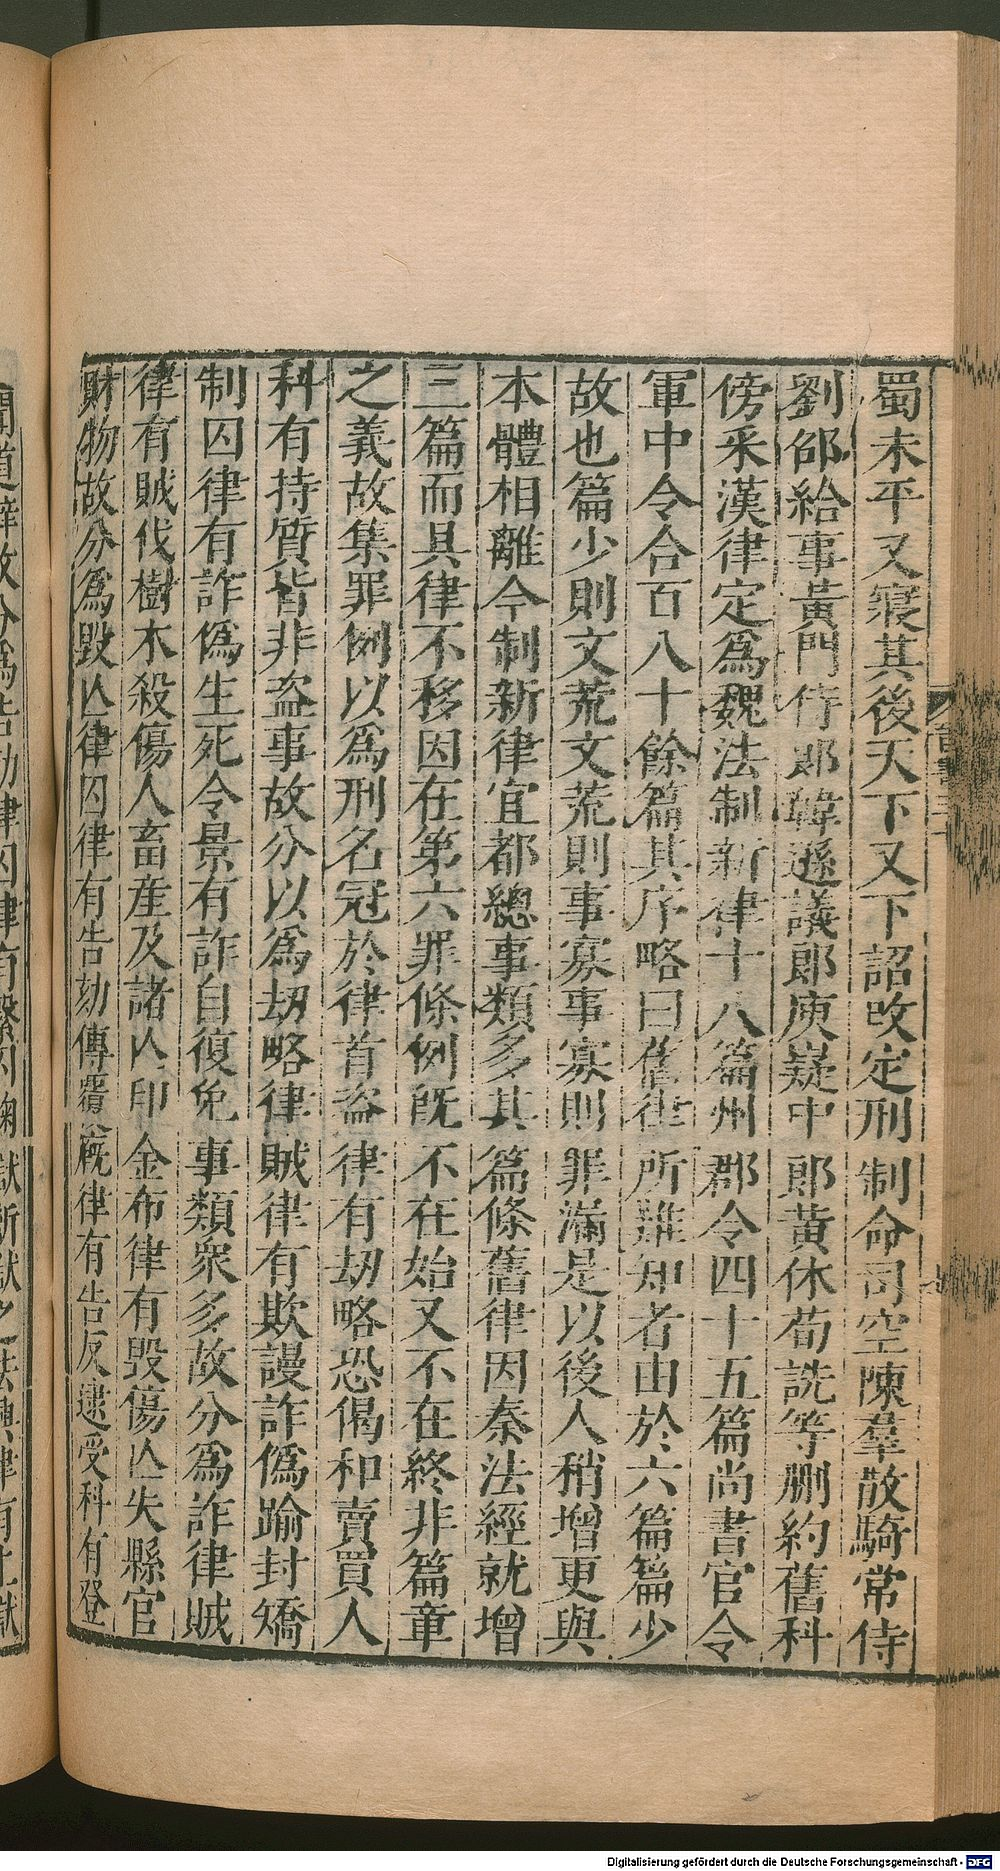 蜀未平又寢其後天下又下詔改定刑制命司空陳羣散騎常侍
劉邵給事黃門侍郎韓遜議郎庾嶷中郎黃休荀詵等刪約舊科
傍采漢律定爲魏法制新律十八篇州郡令四十五篇尚書官令
軍中令合百八十餘篇其序略曰舊律所難知者由於六篇篇少
故也篇少則文荒文荒則事寡事寡則罪漏是以後人稍增更與
本體相離今制新律宜都總事類多其篇條舊律因秦法經就增
三篇而具律不移因在第六罪條例旣不在始又不在終非篇章
之義故集罪例以爲刑名冠於律首盜律有劫略恐偈和賣買人
科有持質皆非盜事故分以爲劫略律賊律有欺謾詐僞踰封矯
制囚律有詐僞生死令景有詐自復免事類衆多故分爲詐律賊
律有賊伐樹木殺傷人畜產及諸亾印金布律有毀傷亾失縣官
財物故分爲毀亾律囚律有告劾傳覆廄律有告反逮受科有登
聞道辭故分爲告劾律囚律有繫囚鞫獄斷獄之法興律有上獄
晉書三十
Digitalisierung gefördert durch die Deutsche Forschungsgemeinschaft - DFG